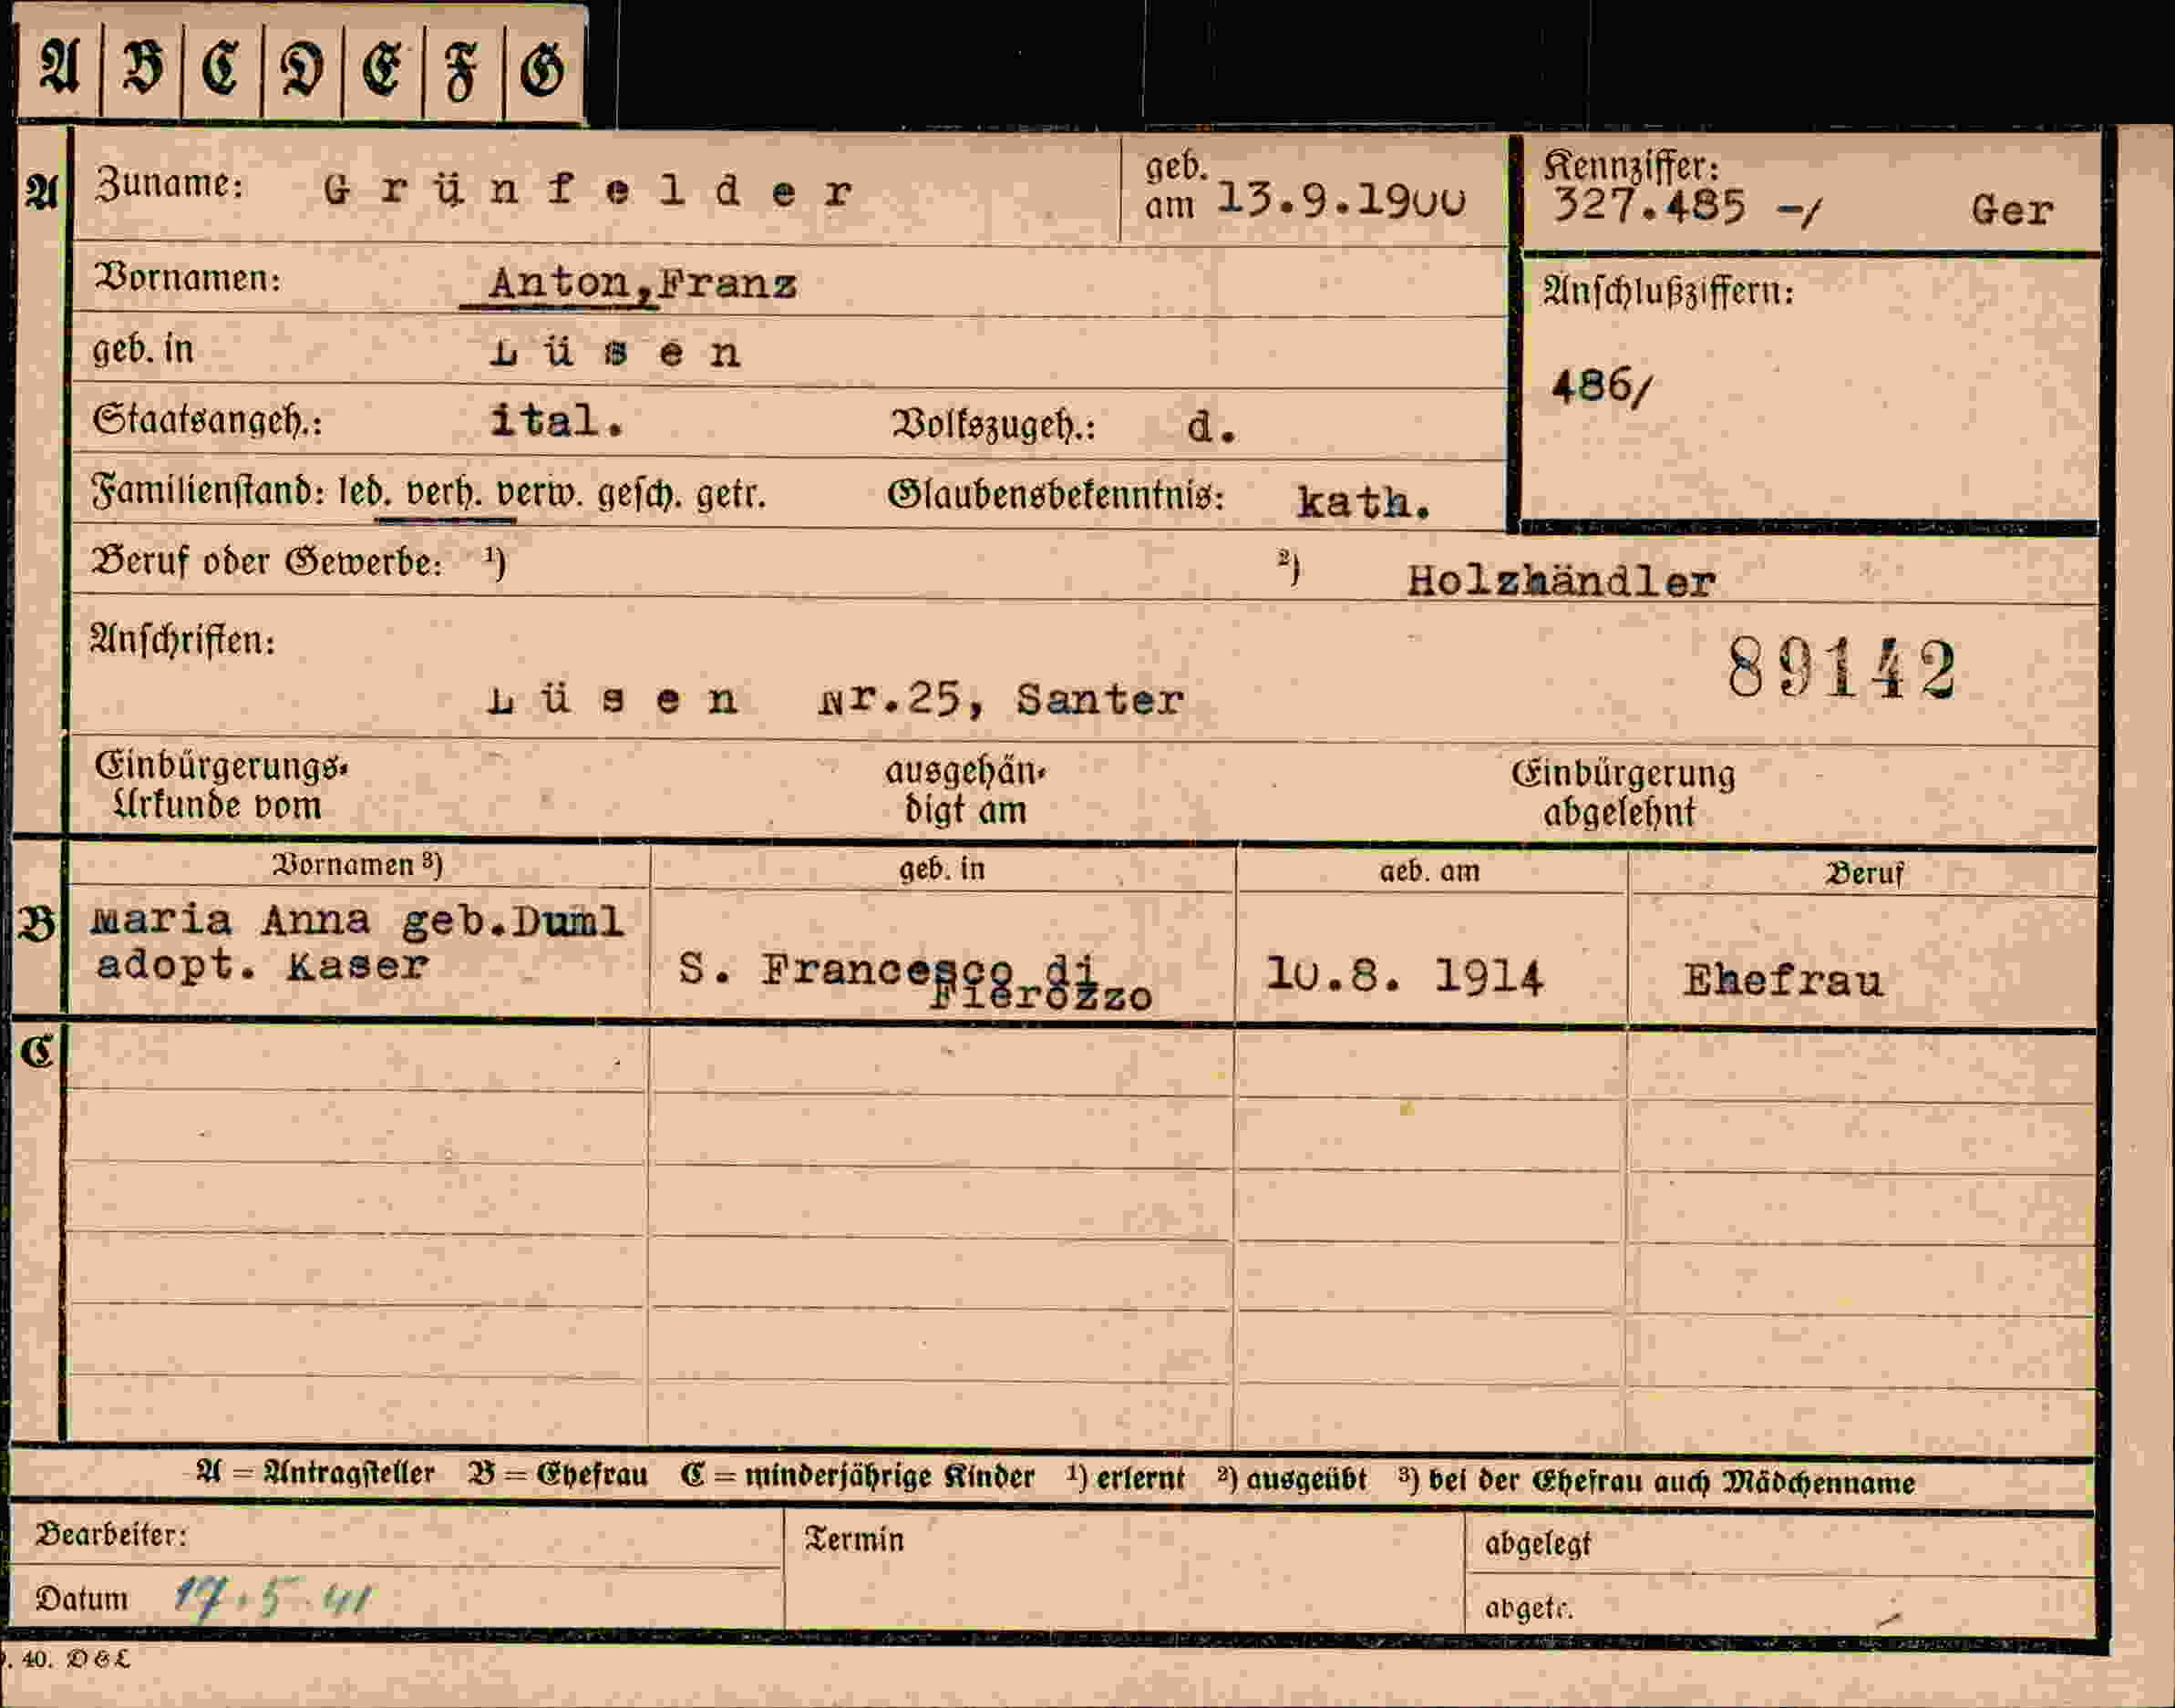 A B C D E F G
A Zuname: Grünfelder geb. am 13.9.1900 Kennziffer: 327.485 -/ Ger
Vornamen: Anton, Franz Anschlußziffern:
geb. in Lüsen
486/
Staatsangeh.: ital. Volkszugeh.: d.
Familienstand: led. verh. verw. gesch. getr. Glaubensbekenntnis: kath.
Beruf oder Gewerbe: ¹) ²) Holzhändler
Anschriften:
89142
Lüsen Nr.25, Santer
Einbürgerungs- ausgehän- Einbürgerung
Urkunde vom digt am abgelehnt
Vornamen ³) geb. in geb. am Beruf
B Maria Anna geb.Duml
adopt. Kaser S. Francesco di 10.8. 1914 Ehefrau
Fierozzo
C
A = Antragsteller B = Ehefrau C = minderjährige Kinder ¹) erlernt ²) ausgeübt ³) bei der Ehefrau auch Mädchenname
Bearbeiter: Termin abgelegt
Datum 17.5.41 abgetr.
. 40. D&L